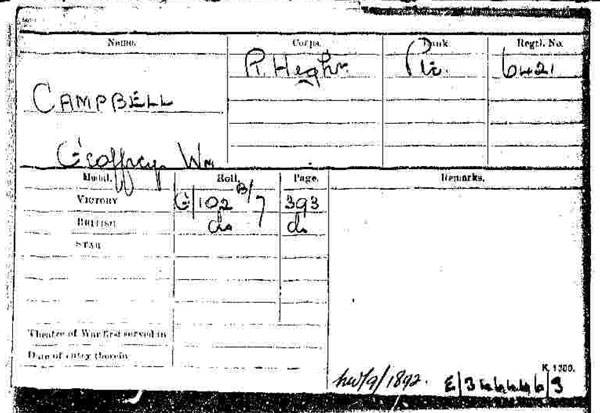 Name. Corps. Rank. Regtl. No.
R. Highrs. Pte. 6421
CAMPBELL
Geoffrey Wm
Medal. Roll. Page. Remarks.
VICTORY G/102 B/7 393
BRITISH do do
STAR
Theatre of War first served in
Date of entry therein
K. 1380.
/1892.